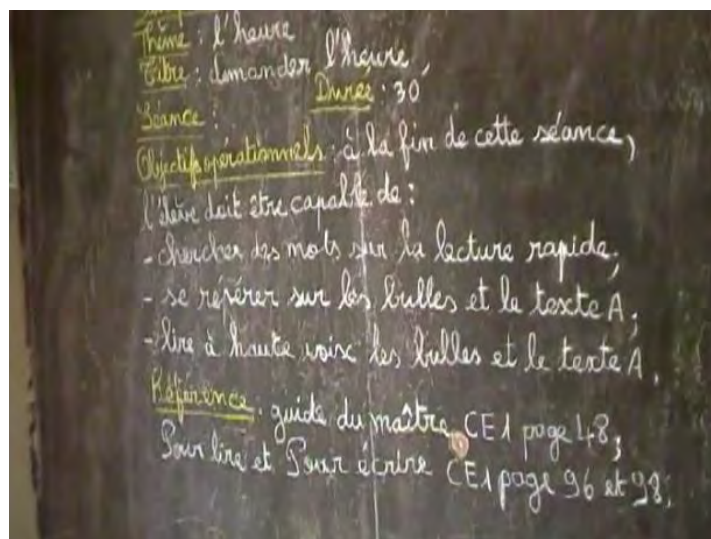 Thème : l'heure
Titre : demander l'heure,
Durée : 30
Séance :
Objectifs opérationnels : à la fin de cette séance,
l'élève doit être capable de :
- chercher des mots sur la lecture rapide,
- se repérer sur les bulles et le texte A ;
- lire à haute voix les bulles et le texte A.
Référence : guide du maître CE1 page 48 ;
Pour lire et Pour écrire CE1 page 96 et 98 ;